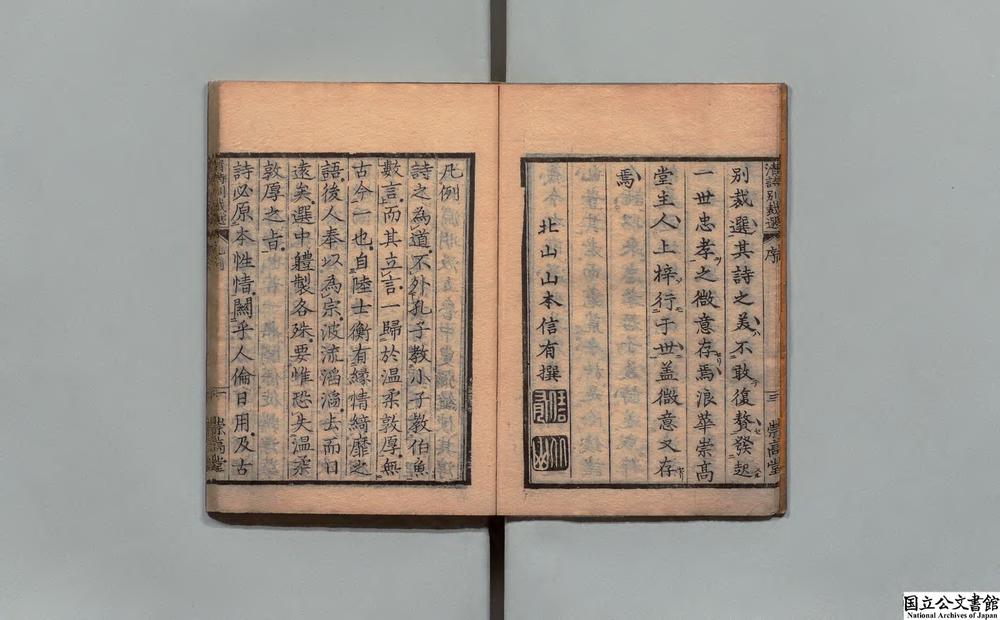 清詩別裁選
序
三
崇高堂
別裁選其詩之美不敢復贅發起
一世忠孝之微意存焉浪華崇高
堂主人上梓行于世蓋微意又存
焉
北山山本信有撰
凡例
詩之為道不外孔子教小子教伯魚
數言而其立言一歸於温柔敦厚無
古今一也自陸士衡有縁情綺靡之
語後人奉以為宗波流滔滔去而日
遠矣選中軆製各殊要惟恐失温柔
敦厚之旨
詩必原本性情關乎人倫日用及古
清詩別裁選
凡例
一
崇高堂
国立公文書館
National Archives of Japan